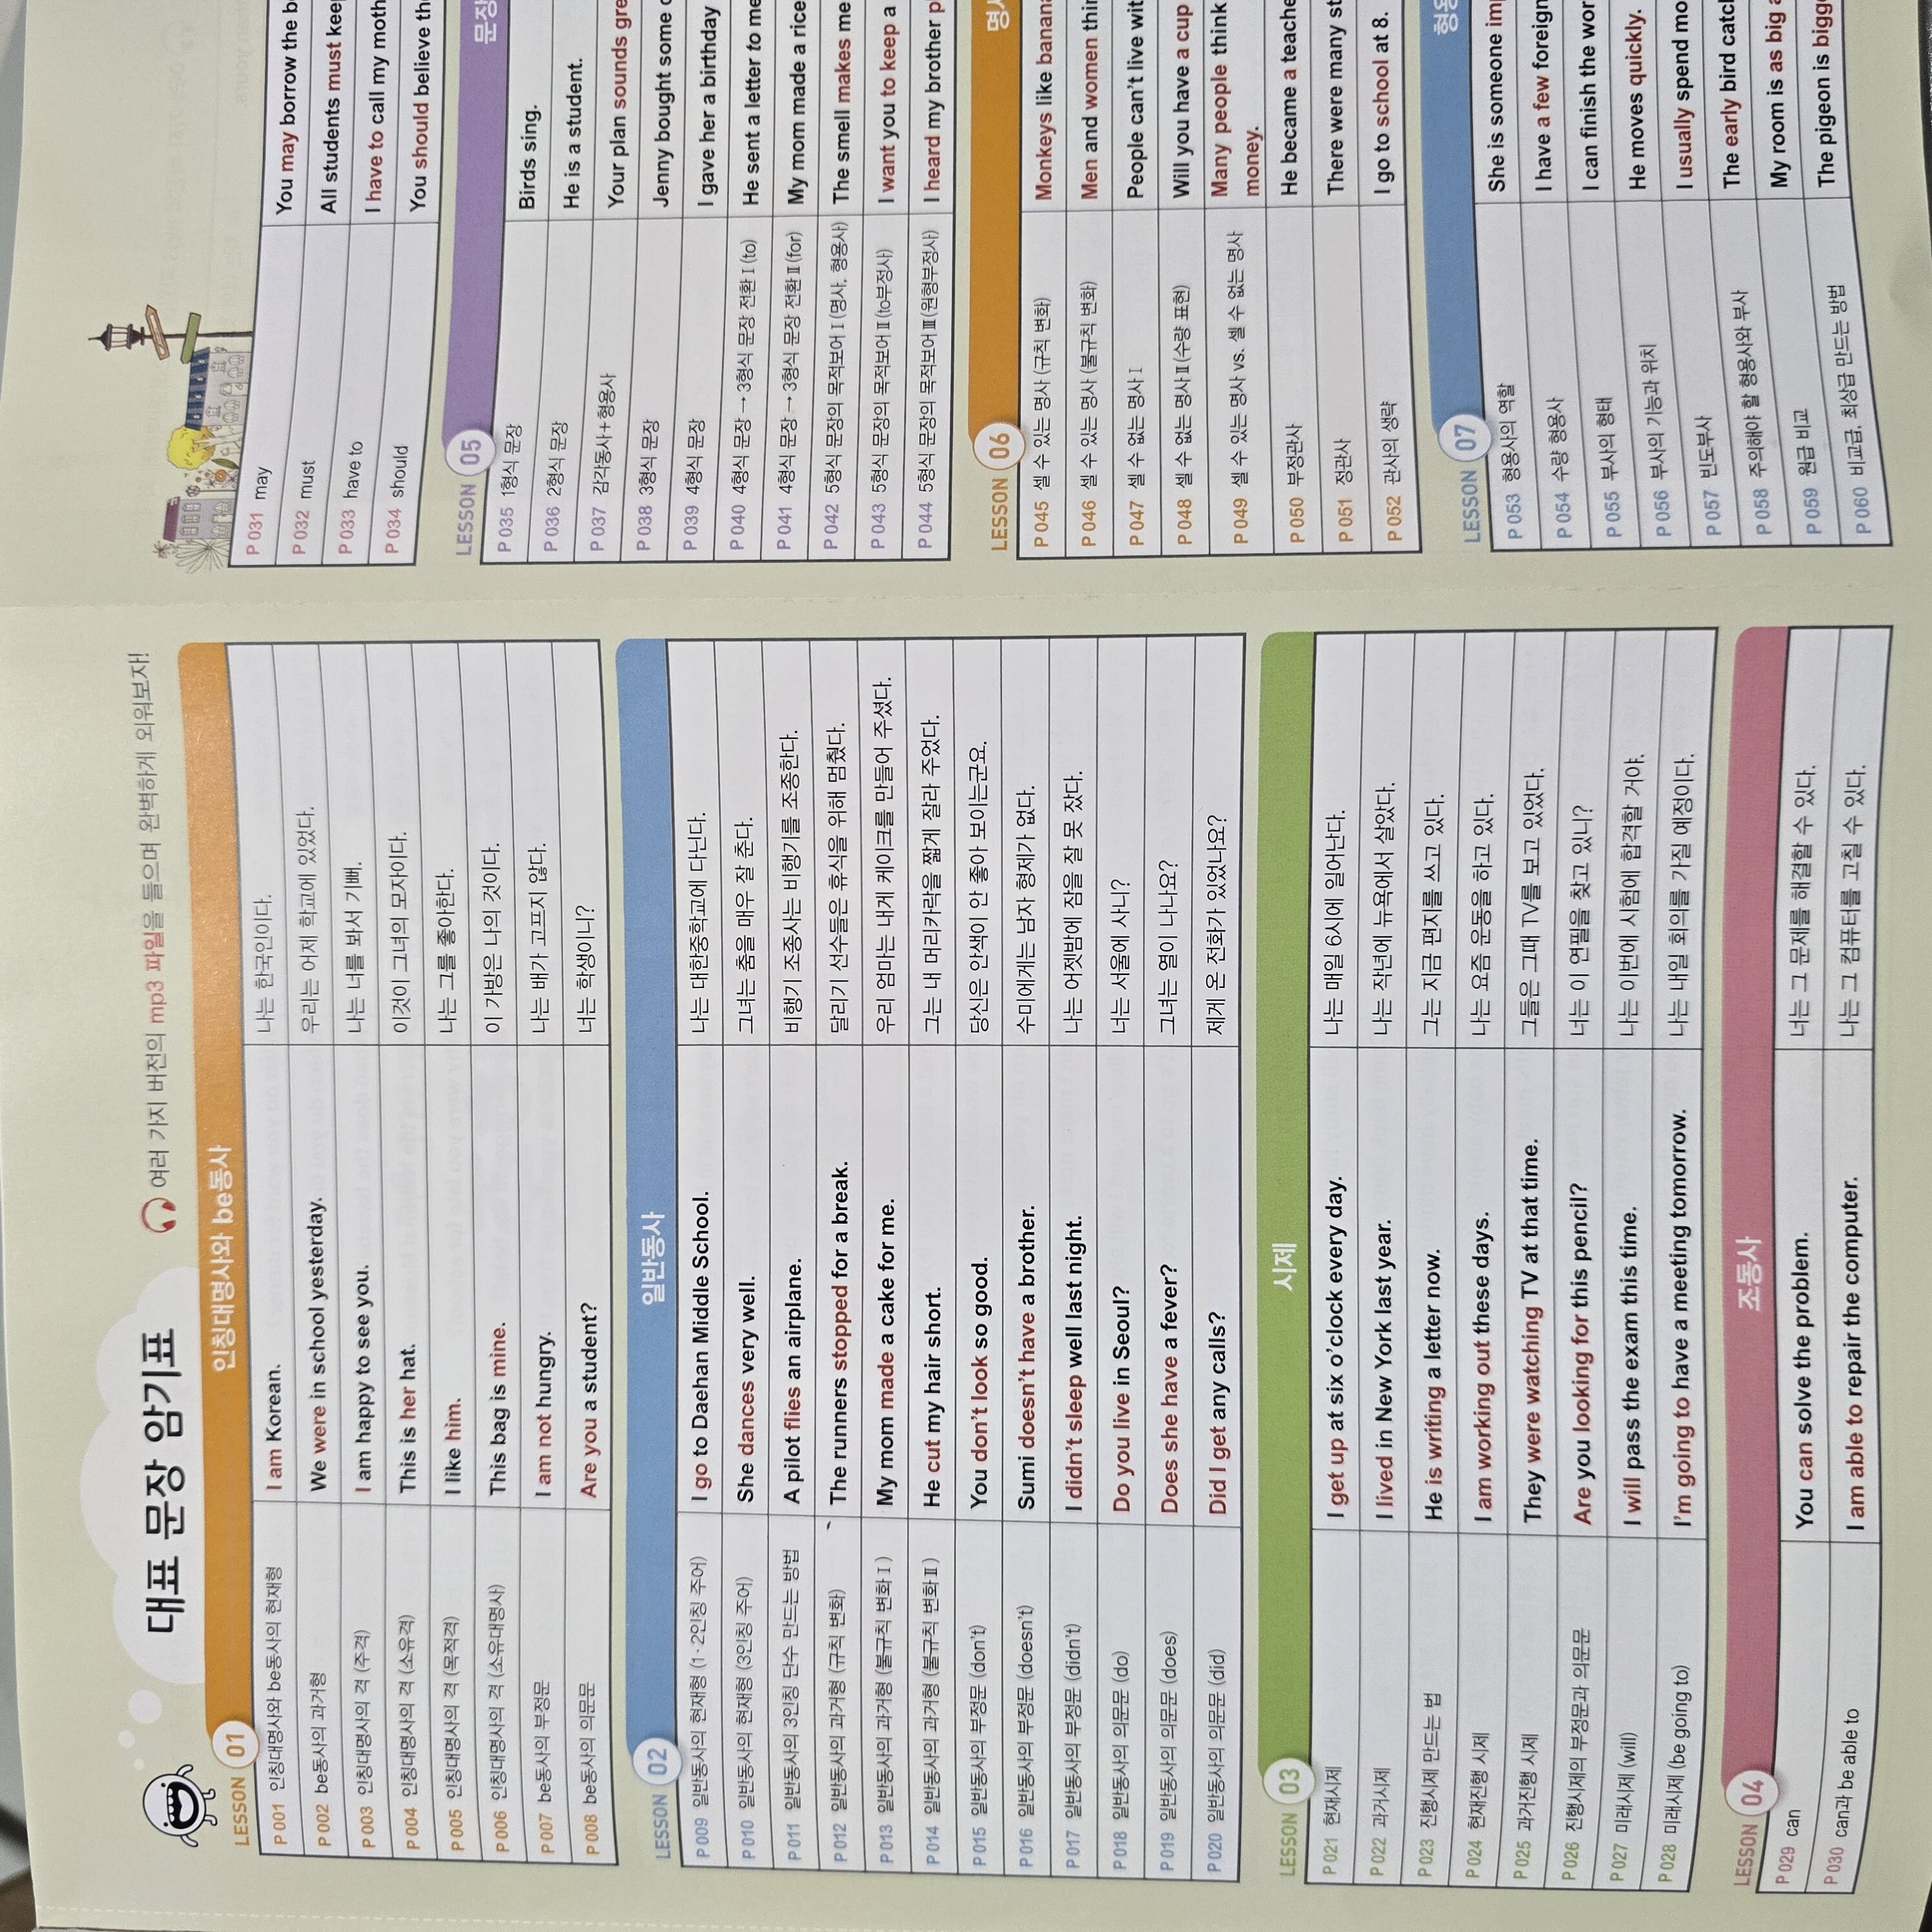 대표 문장 암기표
여러 가지 버전의 mp3 파일을 들으며 완벽하게 외워보자!
LESSON 01 인칭대명사와 be동사
P 001 인칭대명사와 be동사의 현재형 I am Korean. 나는 한국인이다.
P 002 be동사의 과거형 We were in school yesterday. 우리는 어제 학교에 있었다.
P 003 인칭대명사의 격 (주격) I am happy to see you. 나는 너를 봐서 기뻐.
P 004 인칭대명사의 격 (소유격) This is her hat. 이것이 그녀의 모자이다.
P 005 인칭대명사의 격 (목적격) I like him. 나는 그를 좋아한다.
P 006 인칭대명사의 격 (소유대명사) This bag is mine. 이 가방은 나의 것이다.
P 007 be동사의 부정문 I am not hungry. 나는 배가 고프지 않다.
P 008 be동사의 의문문 Are you a student? 너는 학생이니?
LESSON 02 일반동사
P 009 일반동사의 현재형 (1·2인칭 주어) I go to Daehan Middle School. 나는 대한중학교에 다닌다.
P 010 일반동사의 현재형 (3인칭 주어) She dances very well. 그녀는 춤을 매우 잘 춘다.
P 011 일반동사의 3인칭 단수 만드는 방법 A pilot flies an airplane. 비행기 조종사는 비행기를 조종한다.
P 012 일반동사의 과거형 (규칙 변화) The runners stopped for a break. 달리기 선수들은 휴식을 위해 멈췄다.
P 013 일반동사의 과거형 (불규칙 변화 I) My mom made a cake for me. 우리 엄마는 내게 케이크를 만들어 주셨다.
P 014 일반동사의 과거형 (불규칙 변화 II) He cut my hair short. 그는 내 머리카락을 짧게 잘라 주었다.
P 015 일반동사의 부정문 (don't) You don't look so good. 당신은 안색이 안 좋아 보이는군요.
P 016 일반동사의 부정문 (doesn't) Sumi doesn't have a brother. 수미에게는 남자 형제가 없다.
P 017 일반동사의 부정문 (didn't) I didn't sleep well last night. 나는 어젯밤에 잠을 잘 못 잤다.
P 018 일반동사의 의문문 (do) Do you live in Seoul? 너는 서울에 사니?
P 019 일반동사의 의문문 (does) Does she have a fever? 그녀는 열이 나나요?
P 020 일반동사의 의문문 (did) Did I get any calls? 제게 온 전화가 있었나요?
LESSON 03 시제
P 021 현재시제 I get up at six o'clock every day. 나는 매일 6시에 일어난다.
P 022 과거시제 I lived in New York last year. 나는 작년에 뉴욕에서 살았다.
P 023 진행시제 만드는 법 He is writing a letter now. 그는 지금 편지를 쓰고 있다.
P 024 현재진행 시제 I am working out these days. 나는 요즘 운동을 하고 있다.
P 025 과거진행 시제 They were watching TV at that time. 그들은 그때 TV를 보고 있었다.
P 026 진행시제의 부정문과 의문문 Are you looking for this pencil? 너는 이 연필을 찾고 있니?
P 027 미래시제 (will) I will pass the exam this time. 나는 이번에 시험에 합격할 거야.
P 028 미래시제 (be going to) I'm going to have a meeting tomorrow. 나는 내일 회의를 가질 예정이다.
LESSON 04 조동사
P 029 can You can solve the problem. 너는 그 문제를 해결할 수 있다.
P 030 can과 be able to I am able to repair the computer. 나는 그 컴퓨터를 고칠 수 있다.
P 031 may You may borrow the b
P 032 must All students must keep
P 033 have to I have to call my moth
P 034 should You should believe th
LESSON 05 문장
P 035 1형식 문장 Birds sing.
P 036 2형식 문장 He is a student.
P 037 감각동사+형용사 Your plan sounds gre
P 038 3형식 문장 Jenny bought some
P 039 4형식 문장 I gave her a birthday
P 040 4형식 문장 → 3형식 문장 전환 I (to) He sent a letter to me
P 041 4형식 문장 → 3형식 문장 전환 II (for) My mom made a rice
P 042 5형식 문장의 목적보어 I (명사, 형용사) The smell makes me
P 043 5형식 문장의 목적보어 II (to부정사) I want you to keep a
P 044 5형식 문장의 목적보어 III (원형부정사) I heard my brother p
LESSON 06 명사
P 045 셀 수 있는 명사 (규칙 변화) Monkeys like banana
P 046 셀 수 있는 명사 (불규칙 변화) Men and women thin
P 047 셀 수 없는 명사 I People can't live wit
P 048 셀 수 없는 명사 II (수량 표현) Will you have a cup
P 049 셀 수 있는 명사 vs. 셀 수 없는 명사 Many people think
money.
P 050 부정관사 He became a teache
P 051 정관사 There were many st
P 052 관사의 생략 I go to school at 8.
LESSON 07 형용
P 053 형용사의 역할 She is someone im
P 054 수량 형용사 I have a few foreign
P 055 부사의 형태 I can finish the wor
P 056 부사의 기능과 위치 He moves quickly.
P 057 빈도부사 I usually spend mo
P 058 주의해야 할 형용사와 부사 The early bird catch
P 059 원급 비교 My room is as big a
P 060 비교급, 최상급 만드는 방법 The pigeon is bigge